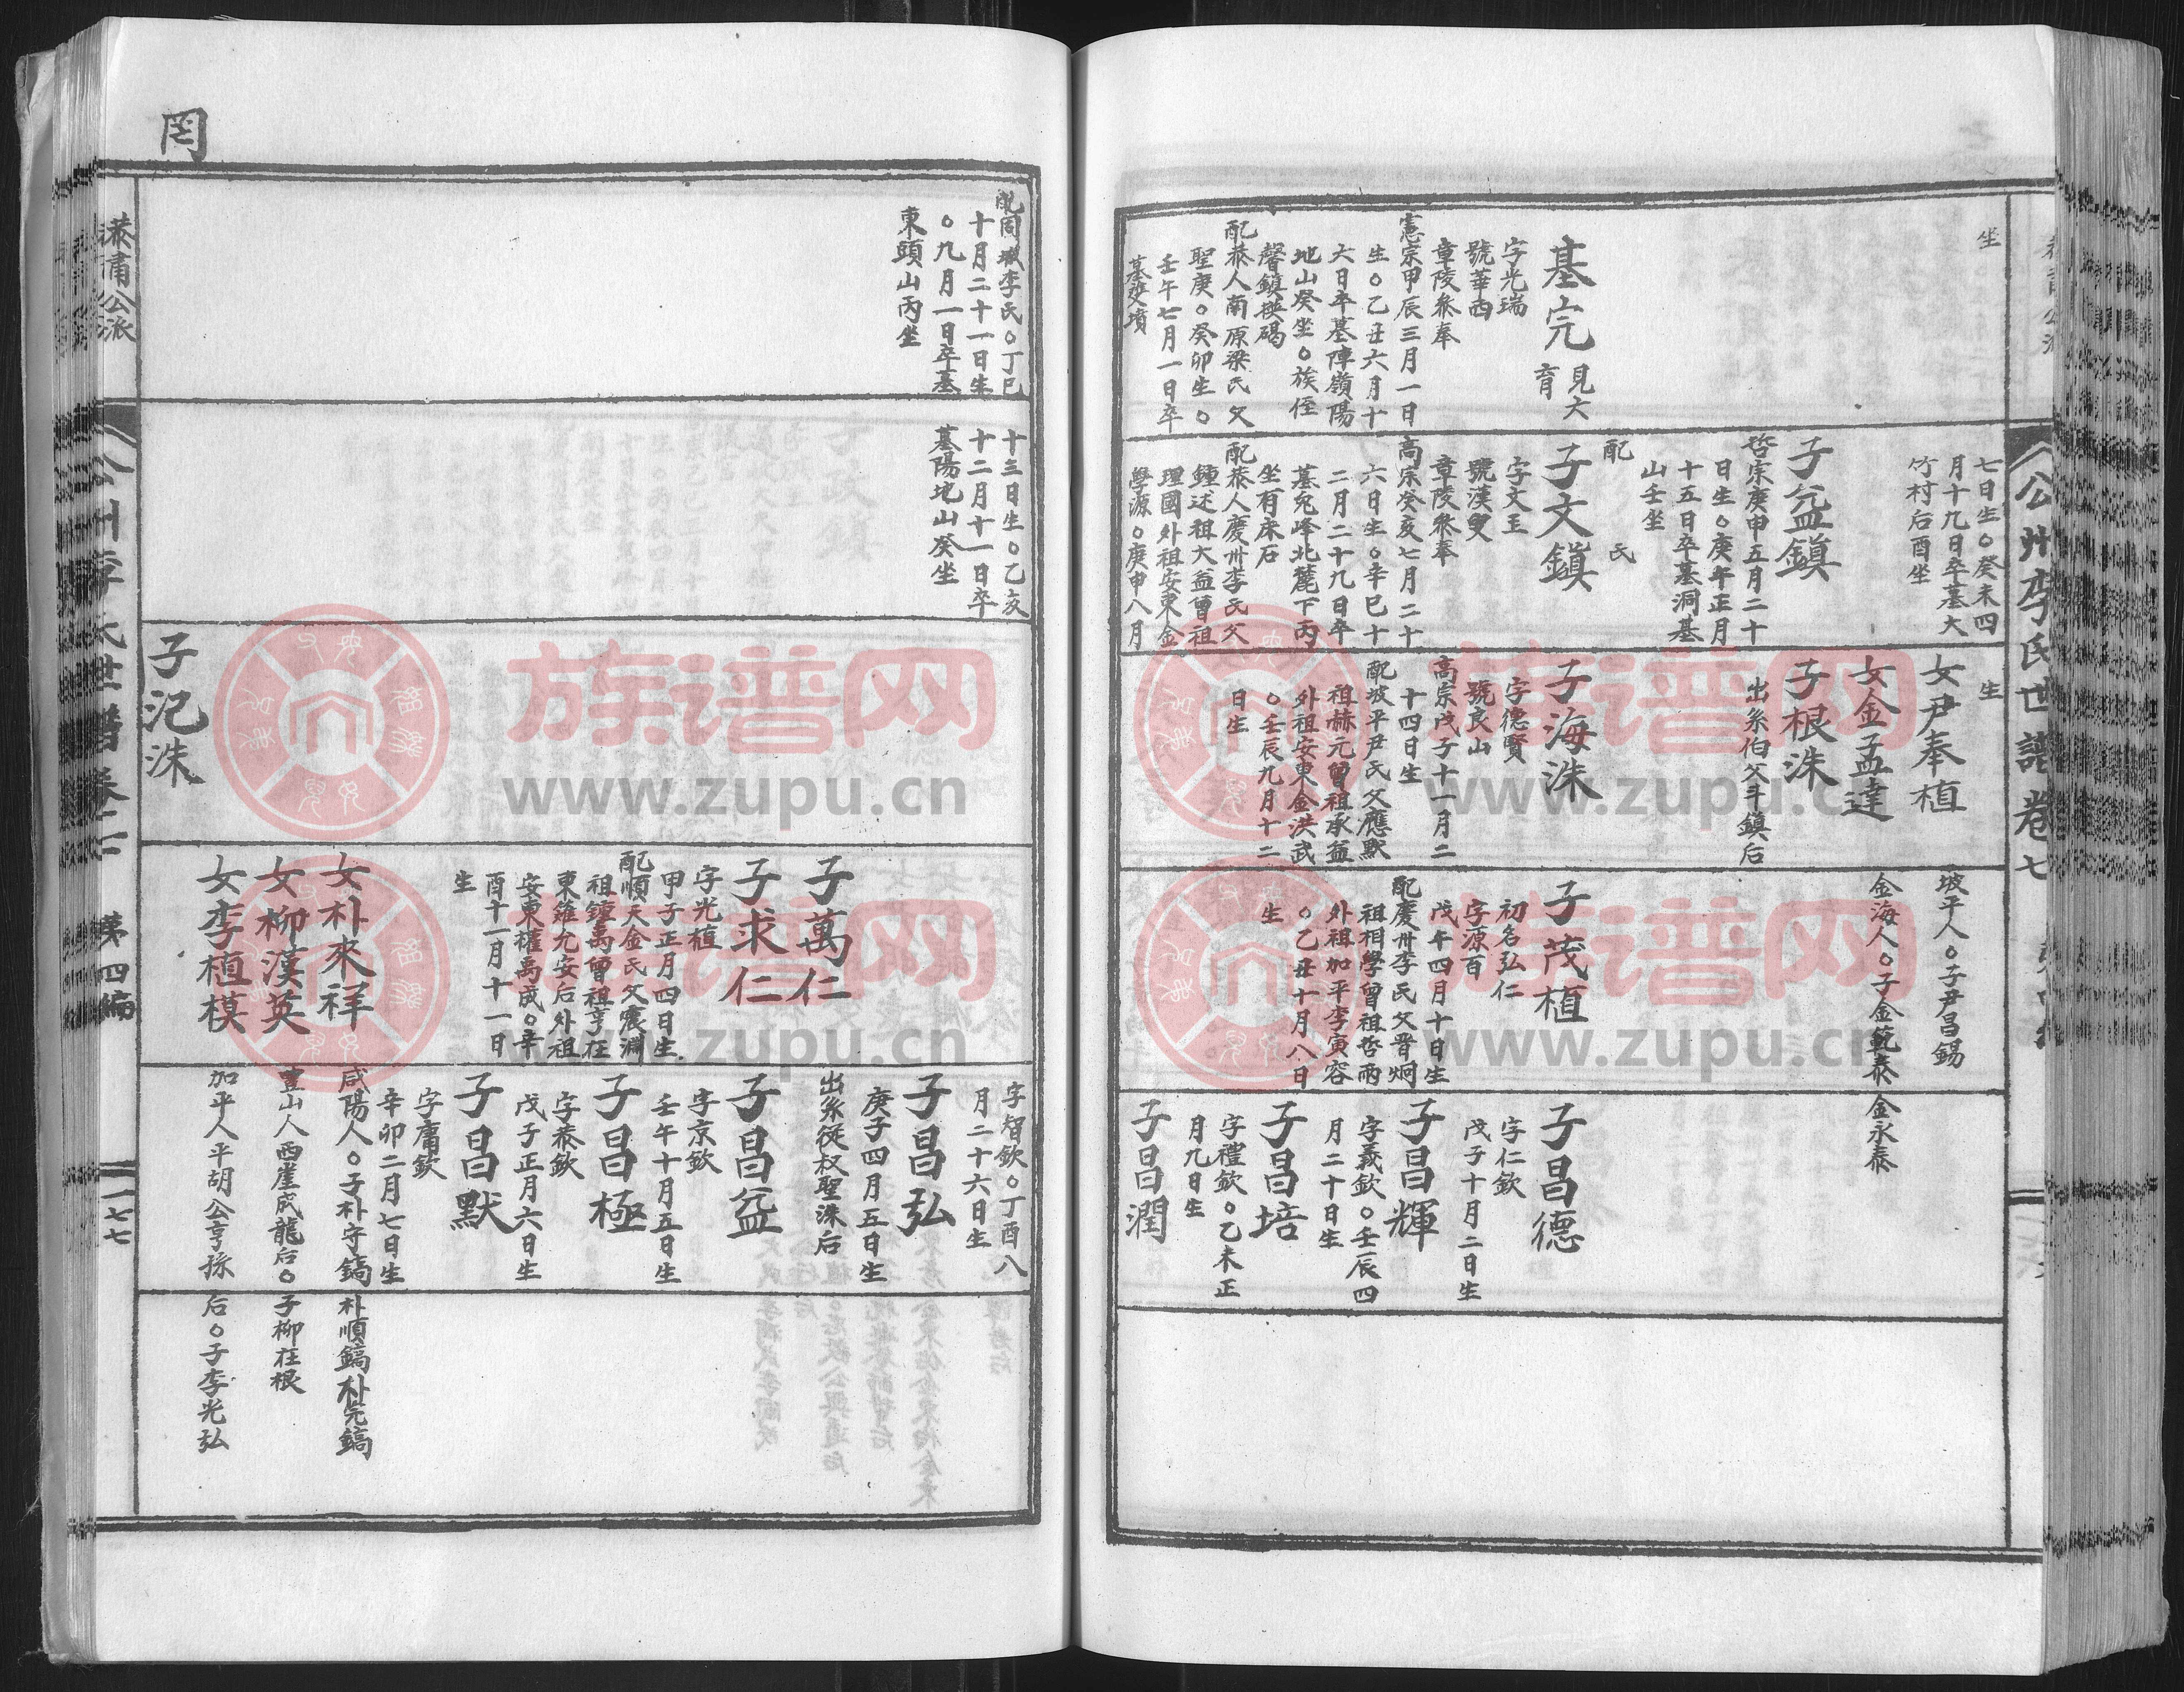 坐
基完
見大
育
字光瑞
號華西
章陵叅奉
憲宗甲辰三月一日
生○乙丑六月十
六日卒墓陣嶺陽
地山癸坐○族侄
馨鎮撰碣
配恭人南原梁氏父
聖庚○癸卯生○
壬午七月一日卒
墓雙墳
七日生○癸未四
月十九日卒墓大
竹村后酉坐
子益鎮
哲宗庚申五月二十
日生○庚午正月
十五日卒墓洞基
山壬坐
配　氏
子文鎮
字文玉
號漢叟
章陵叅奉
高宗癸亥七月二十
六日生○辛巳十
二月二十九日卒
墓兔峰北麓下丙
坐有床石
配恭人慶州李氏父
鍾述祖大益曾祖
理國外祖安東金
學源○庚申八月
生
女尹奉植
女金孟達
子根洙
出系伯父斗鎮后
子海洙
字德賢
號良山
高宗戊子十一月二
十四日生
配坡平尹氏父應默
祖赫元曾祖承益
外祖安東金洪武
○壬辰九月十二
日生
坡平人○子尹昌錫
金海人○子金範泰
子茂植
初名弘仁
字源百
戊午四月十日生
配慶州李氏父晋炯
祖相學曾祖哲雨
外祖加平李寅容
○乙丑十月八日
生
金永泰
子昌德
字仁欽
戊子十月二日生
子昌輝
字義欽○壬辰四
月二十日生
子昌培
字禮欽○乙未正
月九日生
子昌潤
公州李氏世譜卷七
罔
配固城李氏○丁巳
十月二十一日生
○九月一日卒墓
東頭山丙坐
十三日生○乙亥
十二月十一日卒
墓陽地山癸坐
子汜洙
子萬仁
子求仁
字光植
甲子正月四日生
配順天金氏父震淵
祖鍾禹曾祖亨在
東維允安后外祖
安東權禹成○辛
酉十一月十一日
生
女朴來祥
女柳漢英
女李植模
字智欽○丁酉八
月二十六日生
子昌弘
庚子四月五日生
出系從叔聖洙后
子昌益
字京欽
壬午十月五日生
子昌極
字恭欽
戊子正月六日生
子昌默
字庸欽
辛卯二月七日生
咸陽人○子朴守鎬
豊山人西崖成龍后○
加平人平胡公亨孫
朴順鎬朴完鎬
子柳在根
后○子李光弘
恭肅公派
公州李氏世譜卷七
第四編
一七七
族谱网
www.zupu.cn
族谱网
www.zupu.cn
族谱网
www.zupu.cn
族谱网
www.zupu.cn